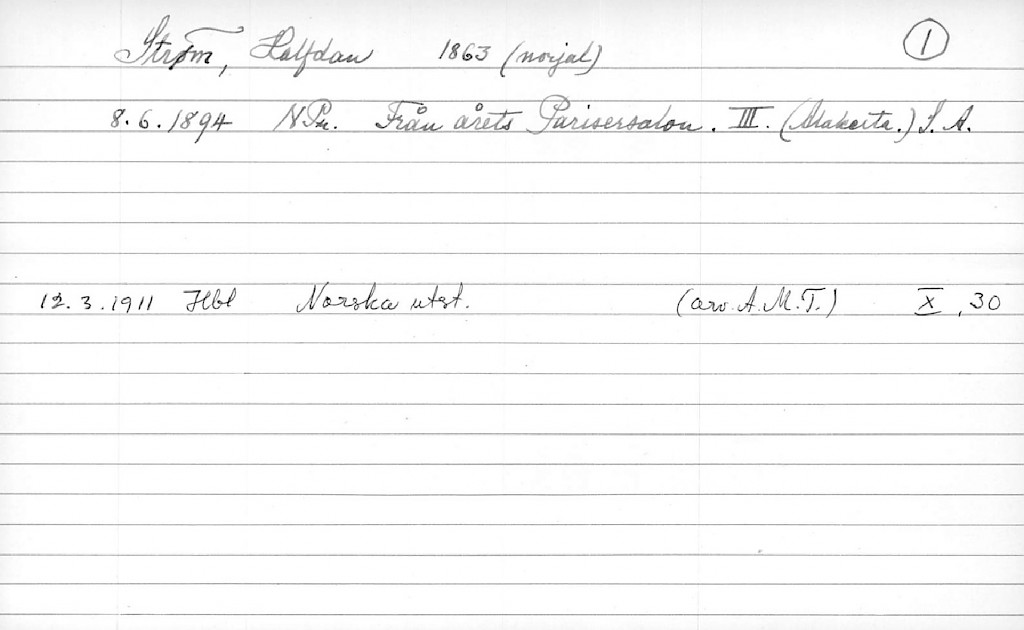 Strøm, Halfdan 1863 (norjal) 1
8.6.1894 N.Pr. Från årets Parisersalon. III. S. A.
12.3.1911 Hbl Norska utst. (arv. A.M.T.) X, 30